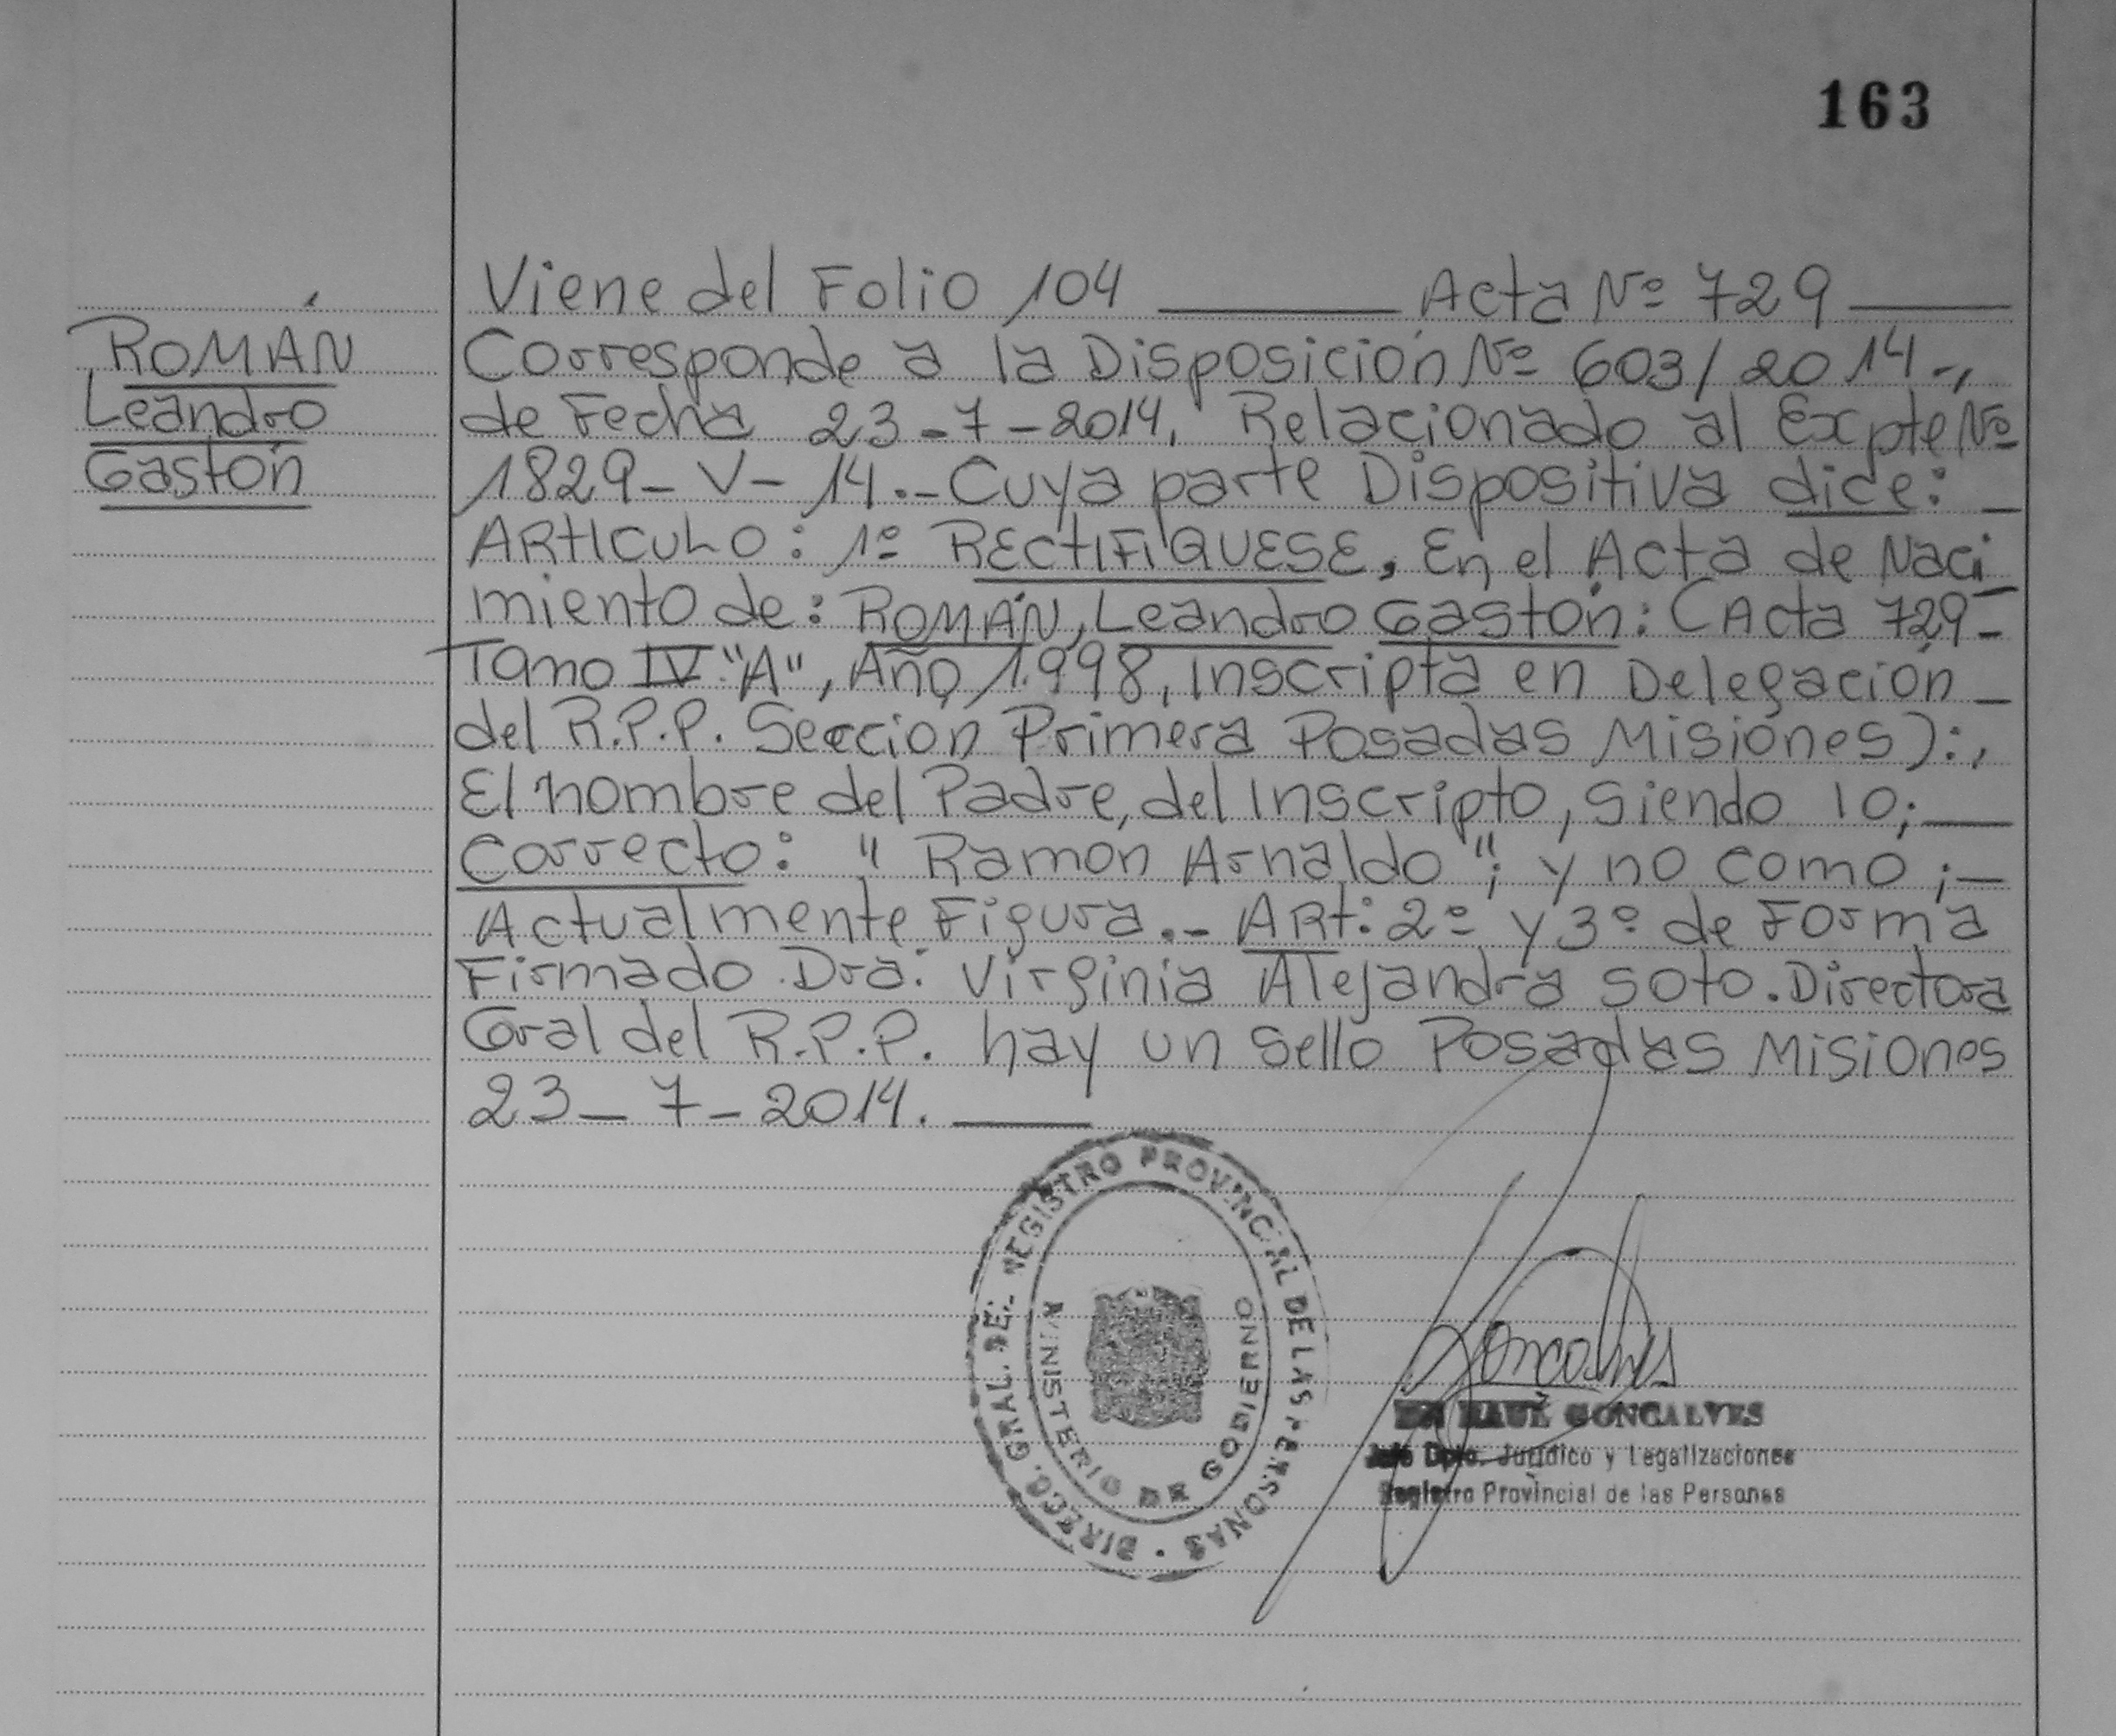 163
ROMÁN
Leandro
Gastón
Viene del Folio 104 ______ Acta Nº 729 ______
Corresponde a la Disposición Nº 603/2014-,
de Fecha 23-7-2014, Relacionado al Expte Nº
1829-V-14.-Cuya parte Dispositiva dice: _
ARTICULO: 1º RECTIFIQUESE, En el Acta de Naci
miento de: ROMÁN, Leandro Gastón: (Acta 729-
Tomo IV "A", Año, 1.998, Inscripta en Delegación _
del R.P.P. Seccion Primera Posadas Misiones):,
El nombre del Padre, del Inscripto, Siendo lo; __
Correcto: "Ramon Arnaldo"; y no como ;-
Actualmente Figura.- ART: 2º y 3º de Forma
Firmado Dra: Virginia Alejandra Soto. Directora
Gral del R.P.P. hay un Sello Posadas Misiones
23-7-2014. ______
DIRECC. GRAL. DEL REGISTRO PROVINCIAL DE LAS PERSONAS
MINISTERIO DE GOBIERNO
Goncalves
RAUL GONCALVES
Jefe Dpto. Jurídico y Legalizaciones
Registro Provincial de las Personas